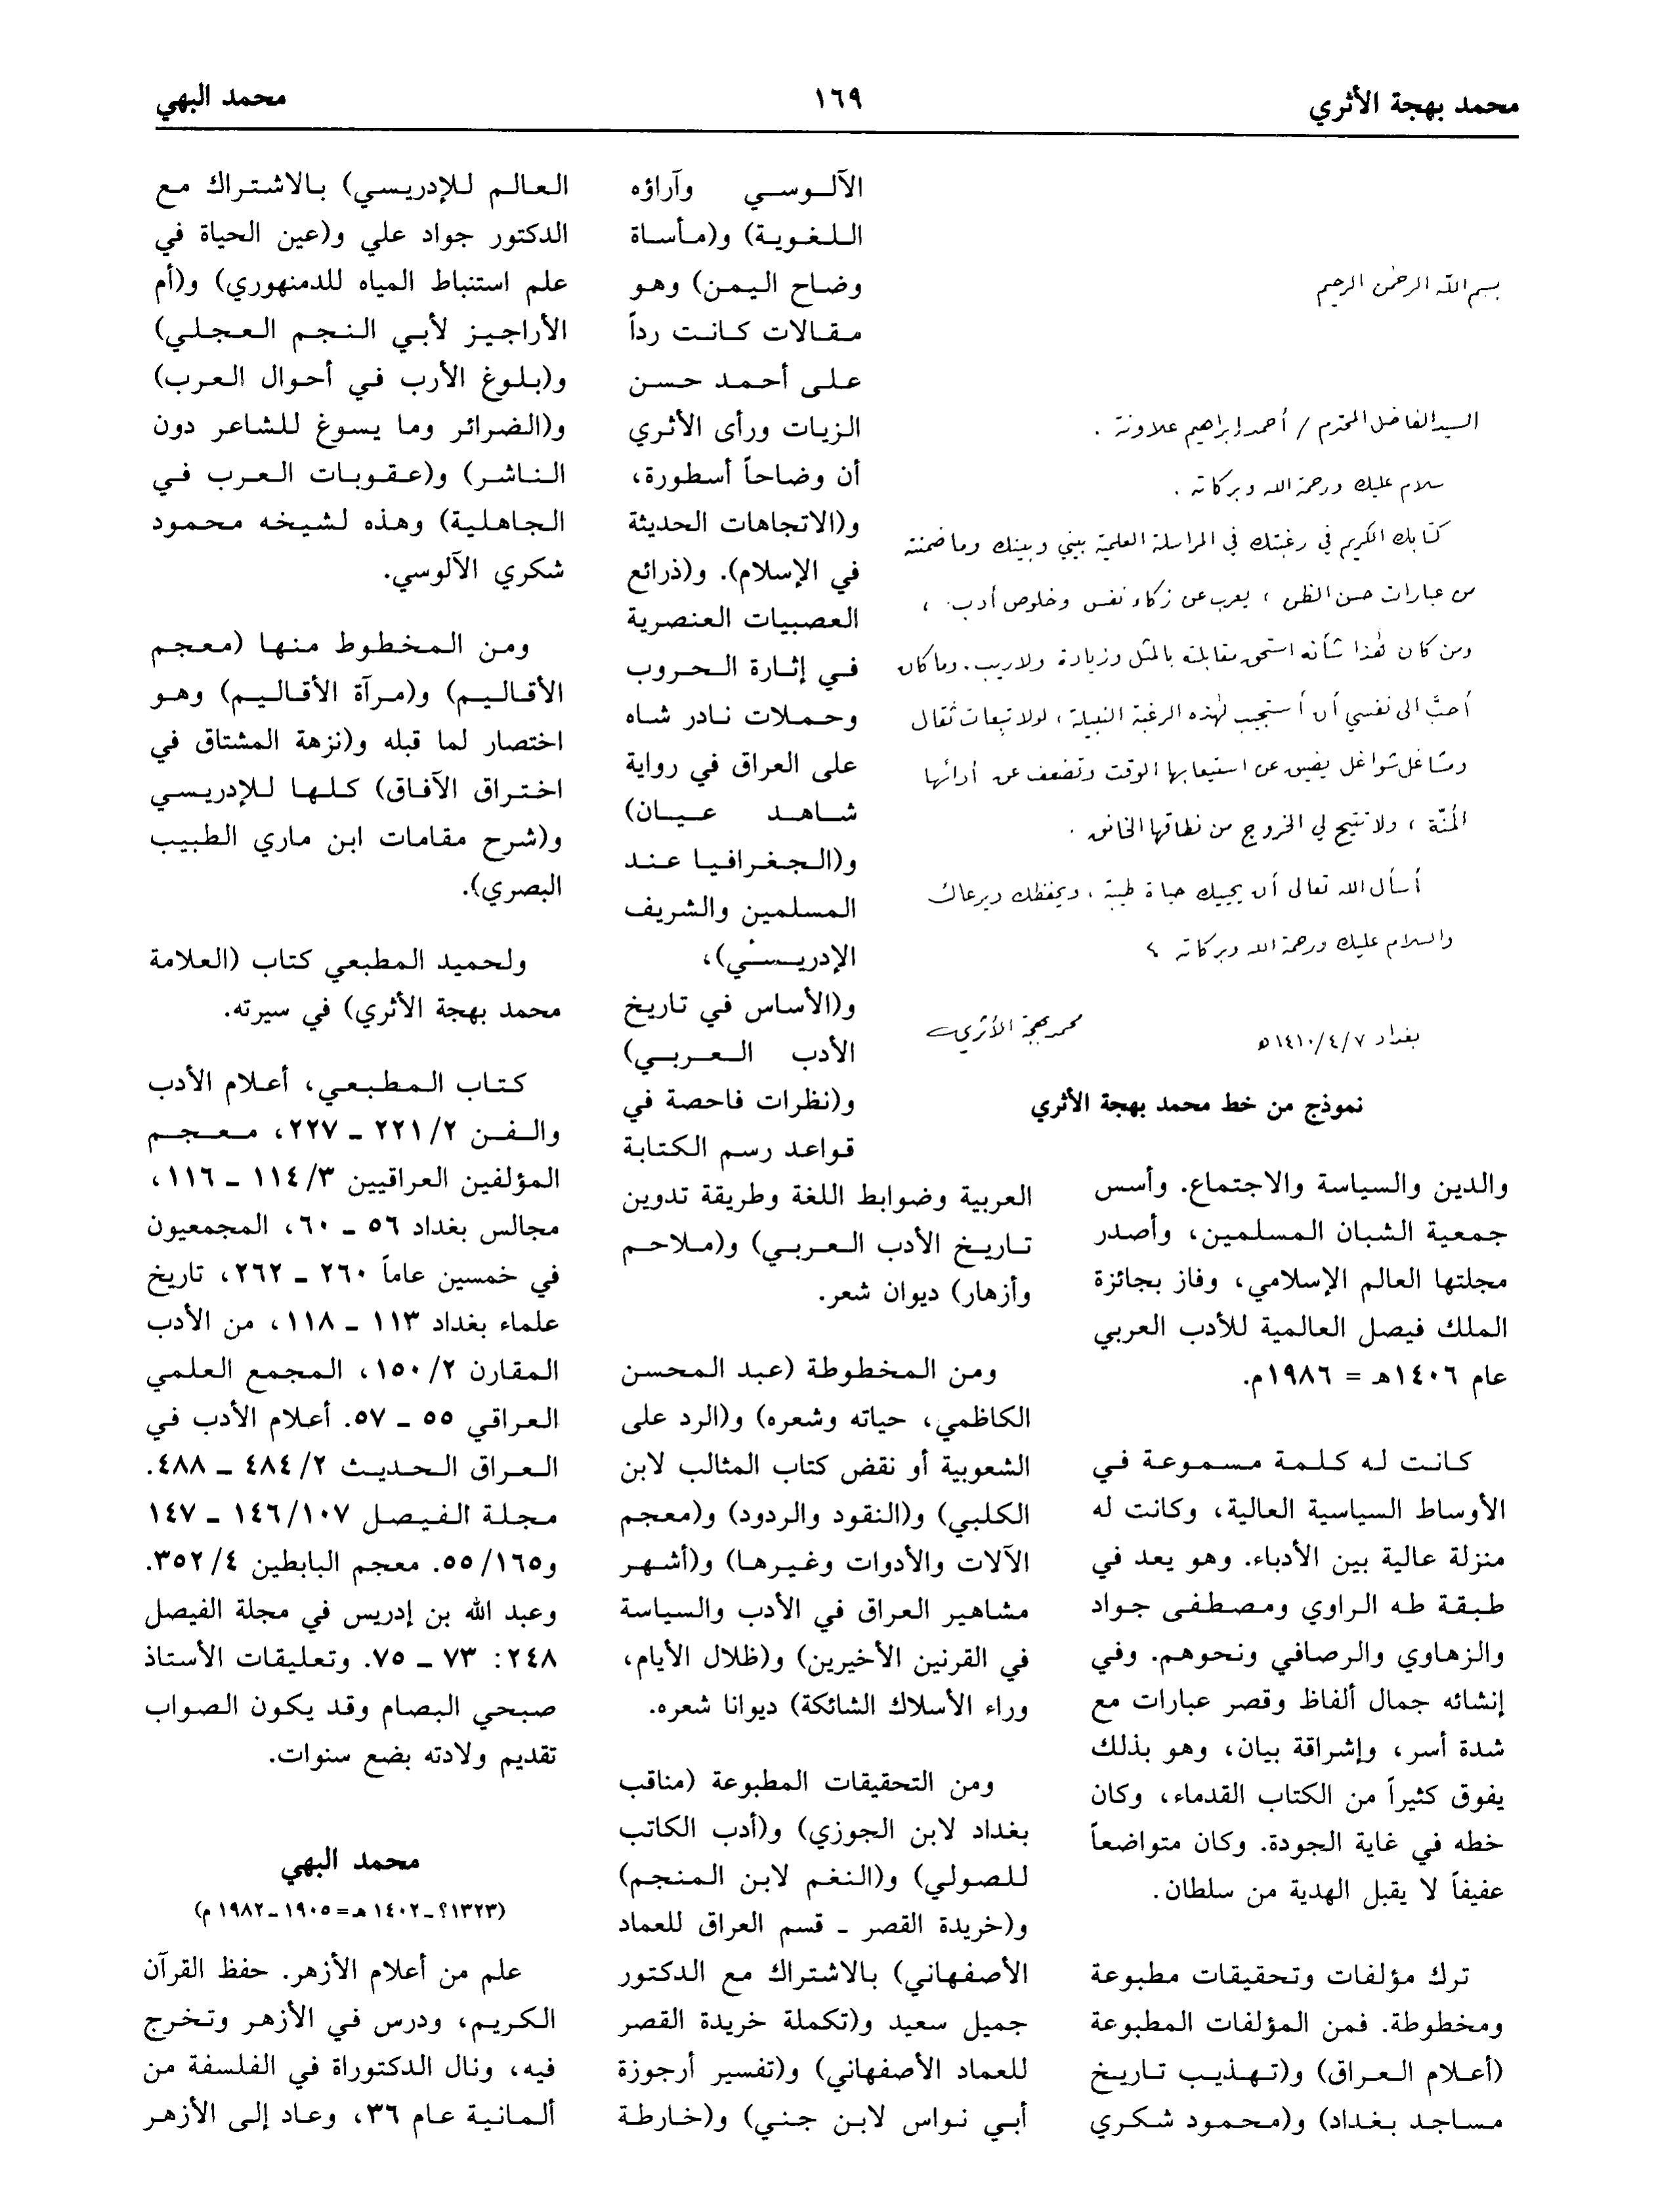 محمد بهجة الأثري
١٦٩
محمد البهي
بسم الله الرحمن الرحيم
السيد الفاضل المحترم / أحمد إبراهيم علاونة .
سلام عليك ورحمة الله وبركاته .
كتابك الكريم في رغبتك في المراسلة العلمية بيني وبينك وما ضمنته
من عبارات حسن الظن ، يعرب عن زكاء نفس وخلوص أدب ،
ومن كان هٰذا شأنه استحق مقابلته بالمثل وزيادة ولا ريب . وما كان
أحبَّ الى نفسي أن أستجيب لهٰذه الرغبة النبيلة ، لولا تبعات ثقال
ومشاغل شواغل يضيق عن استيعابها الوقت وتضعف عن أدائها
المُنّة ، ولا تتيح لي الخروج من نطاقها الخانق .
أسأل الله تعالى أن يحييك حياة طيبة ، ويحفظك ويرعاك
والسلام عليك ورحمة الله وبركاته
بغداد ١٤١٠/٤/٧هـ
محمد بهجة الأثري
نموذج من خط محمد بهجة الأثري
والدين والسياسة والاجتماع. وأسس
جمعية الشبان المسلمين، وأصدر
مجلتها العالم الإسلامي، وفاز بجائزة
الملك فيصل العالمية للأدب العربي
عام ١٤٠٦هـ = ١٩٨٦م.
كانت له كلمة مسموعة في
الأوساط السياسية العالية، وكانت له
منزلة عالية بين الأدباء. وهو يعد في
طبقة طه الراوي ومصطفى جواد
والزهاوي والرصافي ونحوهم. وفي
إنشائه جمال ألفاظ وقصر عبارات مع
شدة أسر، وإشراقة بيان، وهو بذلك
يفوق كثيراً من الكتاب القدماء، وكان
خطه في غاية الجودة. وكان متواضعاً
عفيفاً لا يقبل الهدية من سلطان.
ترك مؤلفات وتحقيقات مطبوعة
ومخطوطة. فمن المؤلفات المطبوعة
(أعلام العراق) و(تهذيب تاريخ
مساجد بغداد) و(محمود شكري
الآلوسي وآراؤه
اللغوية) و(مأساة
وضاح اليمن) وهو
مقالات كانت رداً
على أحمد حسن
الزيات ورأى الأثري
أن وضاحاً أسطورة،
و(الاتجاهات الحديثة
في الإسلام). و(ذرائع
العصبيات العنصرية
في إثارة الحروب
وحملات نادر شاه
على العراق في رواية
شاهد عيان)
و(الجغرافيا عند
المسلمين والشريف
الإدريسي)،
و(الأساس في تاريخ
الأدب العربي)
و(نظرات فاحصة في
قواعد رسم الكتابة
العربية وضوابط اللغة وطريقة تدوين
تاريخ الأدب العربي) و(ملاحم
وأزهار) ديوان شعر.
ومن المخطوطة (عبد المحسن
الكاظمي، حياته وشعره) و(الرد على
الشعوبية أو نقض كتاب المثالب لابن
الكلبي) و(النقود والردود) و(معجم
الآلات والأدوات وغيرها) و(أشهر
مشاهير العراق في الأدب والسياسة
في القرنين الأخيرين) و(ظلال الأيام،
وراء الأسلاك الشائكة) ديوانا شعره.
ومن التحقيقات المطبوعة (مناقب
بغداد لابن الجوزي) و(أدب الكاتب
للصولي) و(النغم لابن المنجم)
و(خريدة القصر ـ قسم العراق للعماد
الأصفهاني) بالاشتراك مع الدكتور
جميل سعيد و(تكملة خريدة القصر
للعماد الأصفهاني) و(تفسير أرجوزة
أبي نواس لابن جني) و(خارطة
العالم للإدريسي) بالاشتراك مع
الدكتور جواد علي و(عين الحياة في
علم استنباط المياه للدمنهوري) و(أم
الأراجيز لأبي النجم العجلي)
و(بلوغ الأرب في أحوال العرب)
و(الضرائر وما يسوغ للشاعر دون
الناشر) و(عقوبات العرب في
الجاهلية) وهذه لشيخه محمود
شكري الآلوسي.
ومن المخطوط منها (معجم
الأقاليم) و(مرآة الأقاليم) وهو
اختصار لما قبله و(نزهة المشتاق في
اختراق الآفاق) كلها للإدريسي
و(شرح مقامات ابن ماري الطبيب
البصري).
ولحميد المطبعي كتاب (العلامة
محمد بهجة الأثري) في سيرته.
كتاب المطبعي، أعلام الأدب
والفن ٢/ ٢٢١ ـ ٢٢٧، معجم
المؤلفين العراقيين ٣/ ١١٤ ـ ١١٦،
مجالس بغداد ٥٦ ـ ٦٠، المجمعيون
في خمسين عاماً ٢٦٠ ـ ٢٦٢، تاريخ
علماء بغداد ١١٣ ـ ١١٨، من الأدب
المقارن ٢/ ١٥٠، المجمع العلمي
العراقي ٥٥ ـ ٥٧. أعلام الأدب في
العراق الحديث ٢/ ٤٨٤ ـ ٤٨٨.
مجلة الفيصل ١٠٧/ ١٤٦ ـ ١٤٧
و١٦٥/ ٥٥. معجم البابطين ٤/ ٣٥٢.
وعبد الله بن إدريس في مجلة الفيصل
٢٤٨: ٧٣ ـ ٧٥. وتعليقات الأستاذ
صبحي البصام وقد يكون الصواب
تقديم ولادته بضع سنوات.
محمد البهي
(١٣٢٣؟ ـ ١٤٠٢ هـ = ١٩٠٥ ـ ١٩٨٢ م)
علم من أعلام الأزهر. حفظ القرآن
الكريم، ودرس في الأزهر وتخرج
فيه، ونال الدكتوراة في الفلسفة من
ألمانية عام ٣٦، وعاد إلى الأزهر